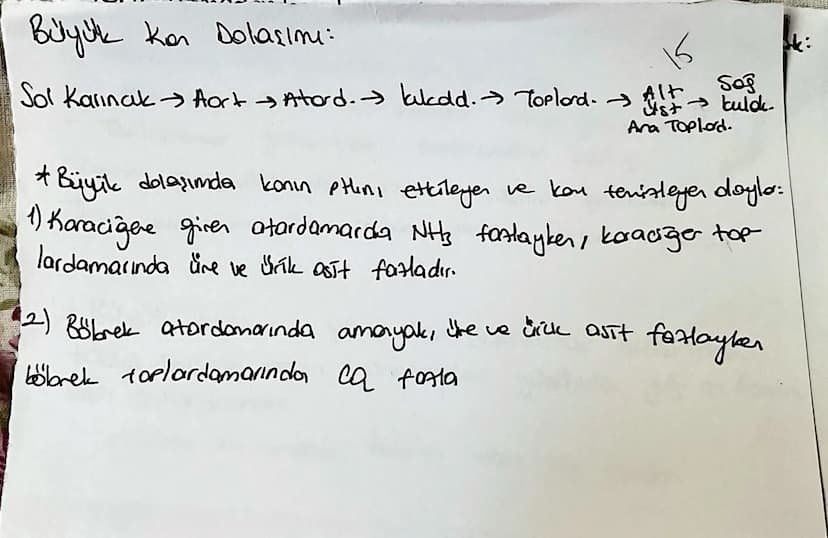 Büyük Kan Dolaşımı:
15
Sol Karıncık → Aort → Atard. → kılcald. → Toplard. → Alt Üst Ana Toplard. → Sağ kulak.
* Büyük dolaşımda kanın pHını etkileyen ve kanı temizleyen olaylar:
1) Karaciğere giren atardamarda NH3 fazlayken, karaciğer top-
lardamarında üre ve ürik asit fazladır.
2) Böbrek atardamarında amonyak, üre ve ürik asit fazlayken
böbrek toplardamarında CO2 fazla